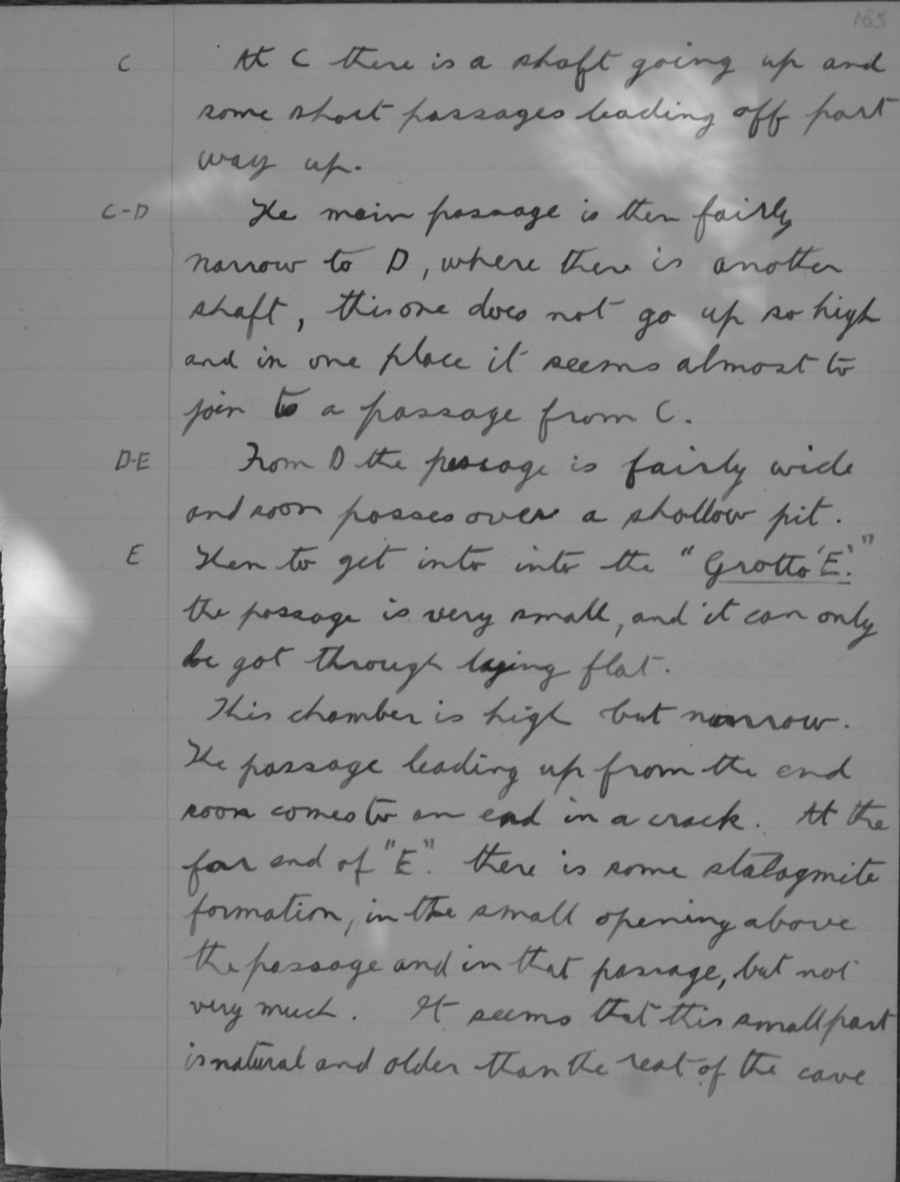 165
C At C there is a shaft going up and
some short passages leading off part
way up.
C-D The main passage is then fairly
narrow to D, where there is another
shaft, this one does not go up so high
and in one place it seems almost to
join to a passage from C.
D-E From D the passage is fairly wide
and soon passes over a shallow pit.
E Then to get into into the "Grotto 'E'."
the passage is very small, and it can only
be got through laying flat.
This chamber is high but narrow.
The passage leading up from the end
soon comes to an end in a crack. At the
far end of "E". there is some stalagmite
formation, in the small opening above
the passage and in that passage, but not
very much. It seems that this small part
is natural and older than the rest of the cave